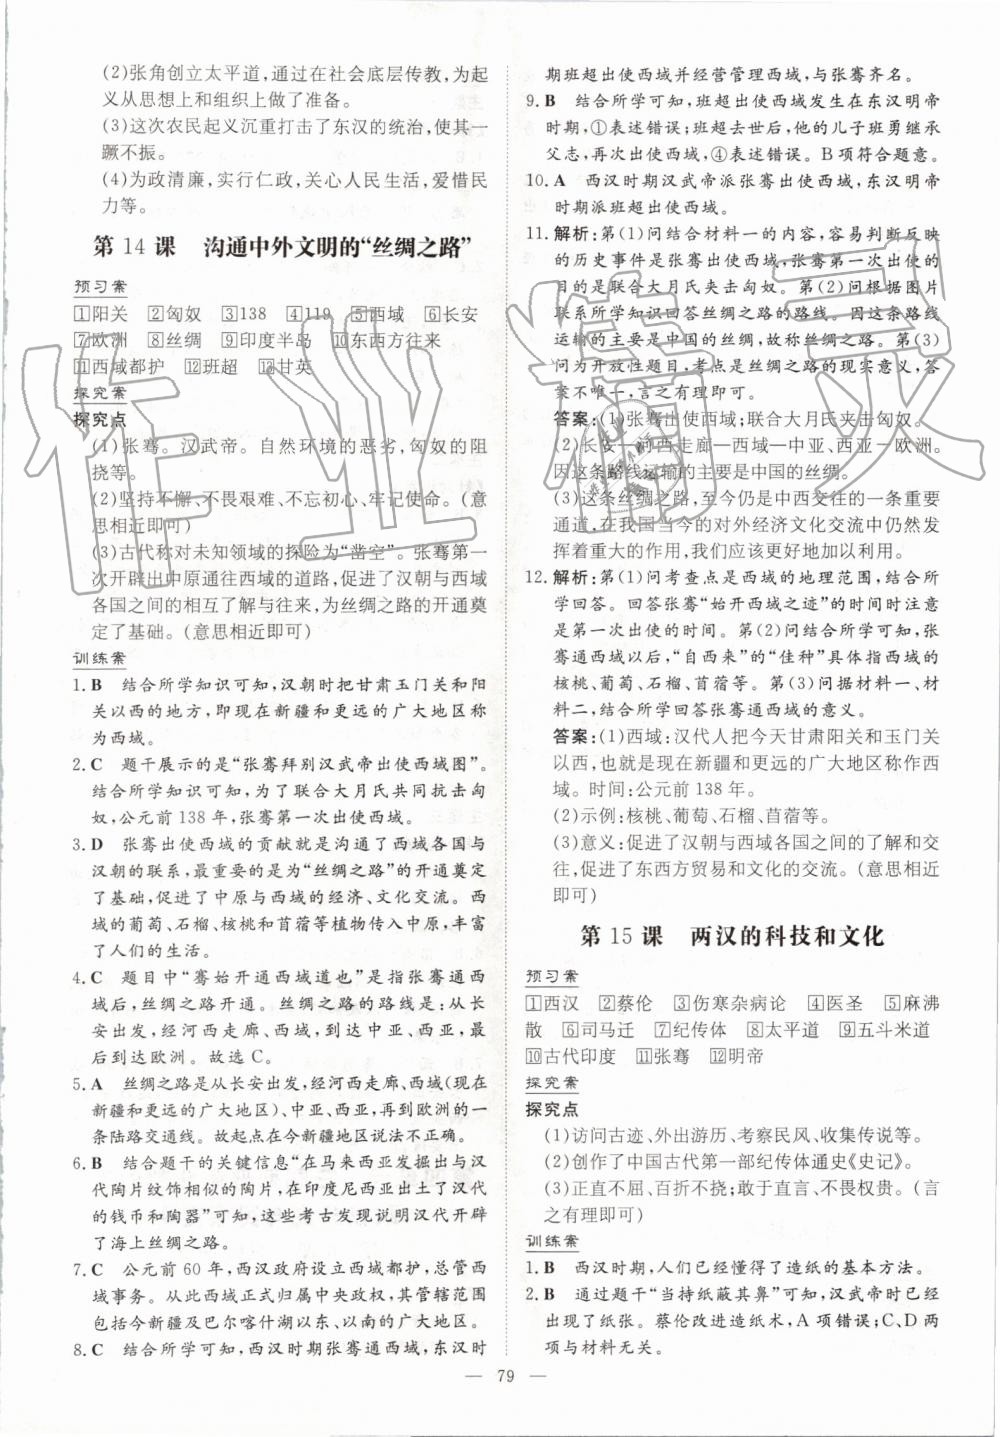 (2)张角创立太平道,通过在社会底层传教,为起
义从思想上和组织上做了准备。
(3)这次农民起义沉重打击了东汉的统治,使其一
蹶不振。
(4)为政清廉,实行仁政,关心人民生活,爱惜民
力等。
第 14 课 沟通中外文明的“丝绸之路”
预习案
1阳关 2匈奴 3138 4119 5西域 6长安
7欧洲 8丝绸 9印度半岛 10东西方往来
11西域都护 12班超 13甘英
探究案
探究点
(1)张骞。汉武帝。自然环境的恶劣,匈奴的阻
挠等。
(2)坚持不懈、不畏艰难、不忘初心、牢记使命。(意
思相近即可)
(3)古代称对未知领域的探险为“凿空”。张骞第一
次开辟出中原通往西域的道路,促进了汉朝与西域
各国之间的相互了解与往来,为丝绸之路的开通奠
定了基础。(意思相近即可)
训练案
1. B 结合所学知识可知,汉朝时把甘肃玉门关和阳
关以西的地方,即现在新疆和更远的广大地区称
为西域。
2. C 题干展示的是“张骞拜别汉武帝出使西域图”。
结合所学知识可知,为了联合大月氏共同抗击匈
奴,公元前138年,张骞第一次出使西域。
3. D 张骞出使西域的贡献就是沟通了西域各国与
汉朝的联系,最重要的是为“丝绸之路”的开通奠定
了基础,促进了中原与西域的经济、文化交流。西
域的葡萄、石榴、核桃和苜蓿等植物传入中原,丰富
了人们的生活。
4. C 题目中“骞始开通西域道也”是指张骞通西
域后,丝绸之路开通。丝绸之路的路线是:从长
安出发,经河西走廊、西域,到达中亚、西亚,最
后到达欧洲。故选C。
5. A 丝绸之路是从长安出发,经河西走廊、西域(今
新疆和更远的广大地区)、中亚、西亚,再到欧洲的
一条陆路交通线。故起点在今新疆地区说法不正确。
6. B 结合题干的关键信息“在马来西亚发掘出与汉
代陶片纹饰相似的陶片,在印度尼西亚出土了汉代
的钱币和陶器”可知,这些考古发现说明汉代开辟
了海上丝绸之路。
7. C 公元前60年,西汉政府设立西域都护,总管西
域事务。从此西域正式归属中央政权,其管辖范围
包括今新疆及巴尔喀什湖以东、以南的广大地区。
8. C 结合所学可知,西汉时期张骞通西域,东汉时
期班超出使西域并经营管理西域,与张骞齐名。
9. B 结合所学可知,班超出使西域发生在东汉明帝
时期,①表述错误;班超去世后,他的儿子班勇继承
父志,再次出使西域,④表述错误。B项符合题意。
10. A 西汉时期汉武帝派张骞出使西域,东汉明帝
时期派班超出使西域。
11. 解析:第(1)问结合材料一的内容,容易判断反映
的历史事件是张骞出使西域,张骞第一次出使的
目的是联合大月氏夹击匈奴。第(2)问根据图片
联系所学知识回答丝绸之路的路线。因这条路线
运输的主要是中国的丝绸,故称丝绸之路。第(3)
问为开放性题目,考点是丝绸之路的现实意义,答
案不唯一,言之有理即可。
答案:(1)张骞出使西域;联合大月氏夹击匈奴。
(2)长安—河西走廊—西域—中亚、西亚—欧洲。
因这条路线运输的主要是中国的丝绸。
(3)这条丝绸之路,至今仍是中西交往的一条重要
通道,在我国当今的对外经济文化交流中仍然发
挥着重大的作用,我们应更好地加以利用。
12. 解析:第(1)问考查点是西域的地理范围,结合所
学回答。回答张骞“始开西域之迹”的时间时注意
是第一次出使的时间。第(2)问结合所学可知,张
骞通西域以后,“自西来”的“佳种”具体指西域的
核桃、葡萄、石榴、苜蓿等。第(3)问据材料一、材
料二,结合所学回答张骞通西域的意义。
答案:(1)西域:汉代人把今天甘肃阳关和玉门关
以西,也就是现在新疆和更远的广大地区称作西
域。时间:公元前138年。
(2)示例:核桃、葡萄、石榴、苜蓿等。
(3)意义:促进了汉朝与西域各国之间的了解和交
往,促进了东西方贸易和文化的交流。(意思相近
即可)
第 15 课 两汉的科技和文化
预习案
1西汉 2蔡伦 3伤寒杂病论 4医圣 5麻沸
散 6司马迁 7纪传体 8太平道 9五斗米道
10古代印度 11张骞 12明帝
探究案
探究点
(1)访问古迹、外出游历、考察民风、收集传说等。
(2)创作了中国古代第一部纪传体通史《史记》。
(3)正直不屈、百折不挠;敢于直言、不畏权贵。(言
之有理即可)
训练案
1. B 西汉时期,人们已经懂得了造纸的基本方法。
2. B 通过题干“当持纸蔽其鼻”可知,汉武帝时已经
出现了纸张。蔡伦改进造纸术,A项错误;C、D两
项与材料无关。
— 79 —
作业精灵